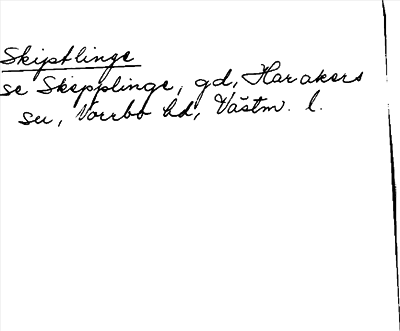 Skiptlinge
se Skepplinge, gd, Harakers
sn, Norrbo hd, Västm. l.